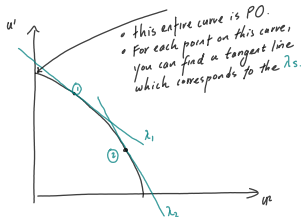 u¹
• this entire curve is PO.
• For each point on this curve,
you can find a tangent line
which corresponds to the λs.
①
λ₁
②
u²
λ₂